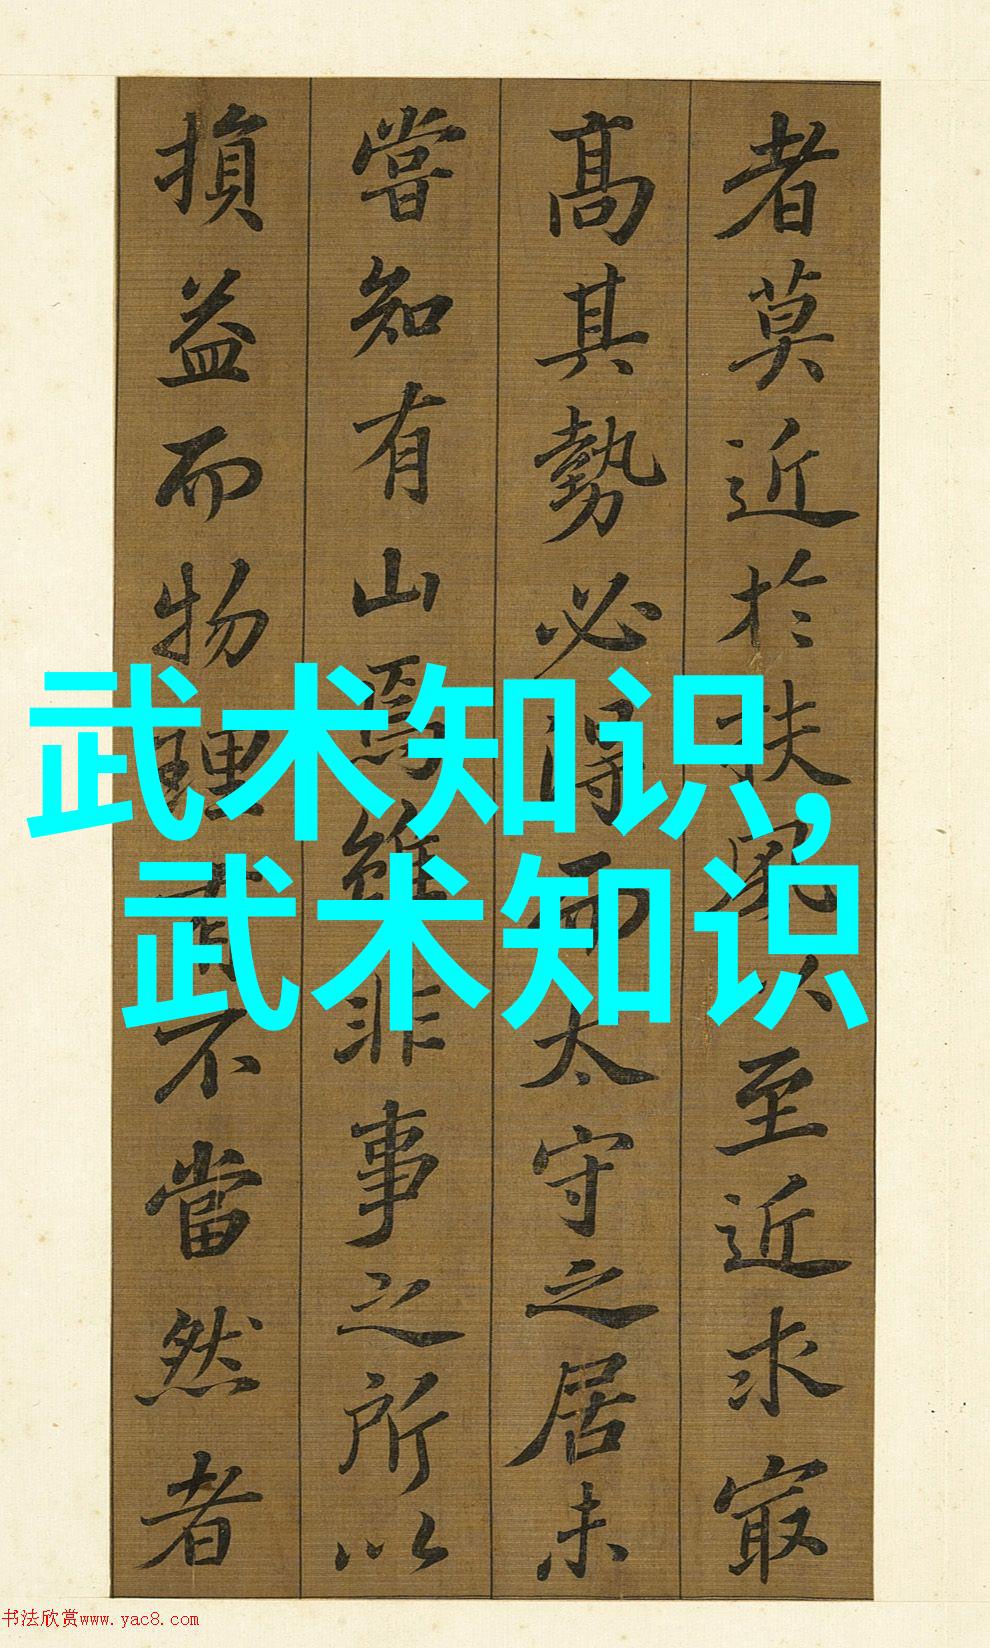 者莫近於扶風以至近求㝡
髙其勢必得而太守之居未
嘗知有山焉雖非事之所以
損益而物理有不當然者
武术知识,
武术知识
书法欣赏www.yac8.com